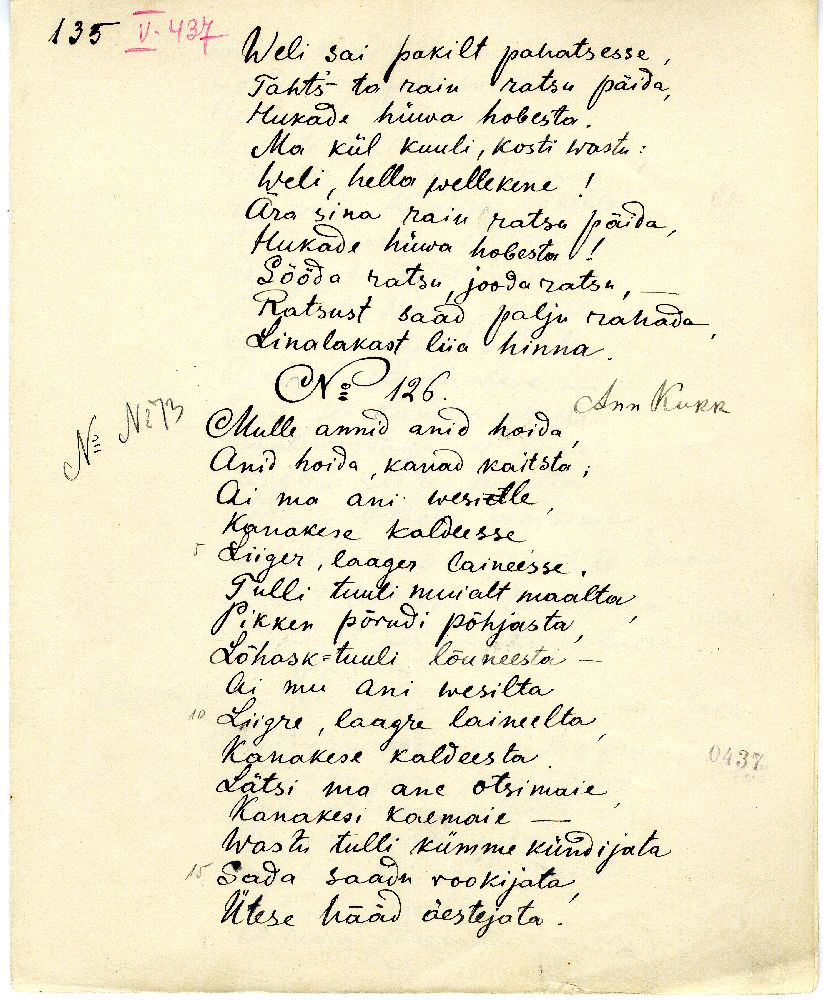 135 V. 437
Weli sai pakilt pahatsesse,
Tahts ta rain ratsu päida,
Hukade hüwa hobesta.
Ma kül kuuli, kosti wastu:
Weli, hella wellekene!
Ära sina rain ratsu päida,
Hukade hüwa hobesta!
Sööda ratsu, jooda ratsu, —
Ratsust saad palju rahada,
Linalakast liia hinna.
№ 126.
Ann Kurr
№ № 73
Mulle annid anid hoida,
Anid hoida, kanad kaitsta;
Ai ma ani wesille,
Kanakese kaldeesse
5 Liiger, laager laineesse.
Tulli tuuli muialt maalta,
Pikken põrudi põhjasta,
Lõhask=tuuli lõuneesta —
Ai mu ani wesilta
10 Liigre, laagre laineelta,
Kanakese kaldeesta.
Lätsi ma ane otsimaie,
Kanakesi kaemaie —
Wastu tulli kümme kündijata
15 Sada saadu rookijata,
Ütese hääd äestejata.
0437